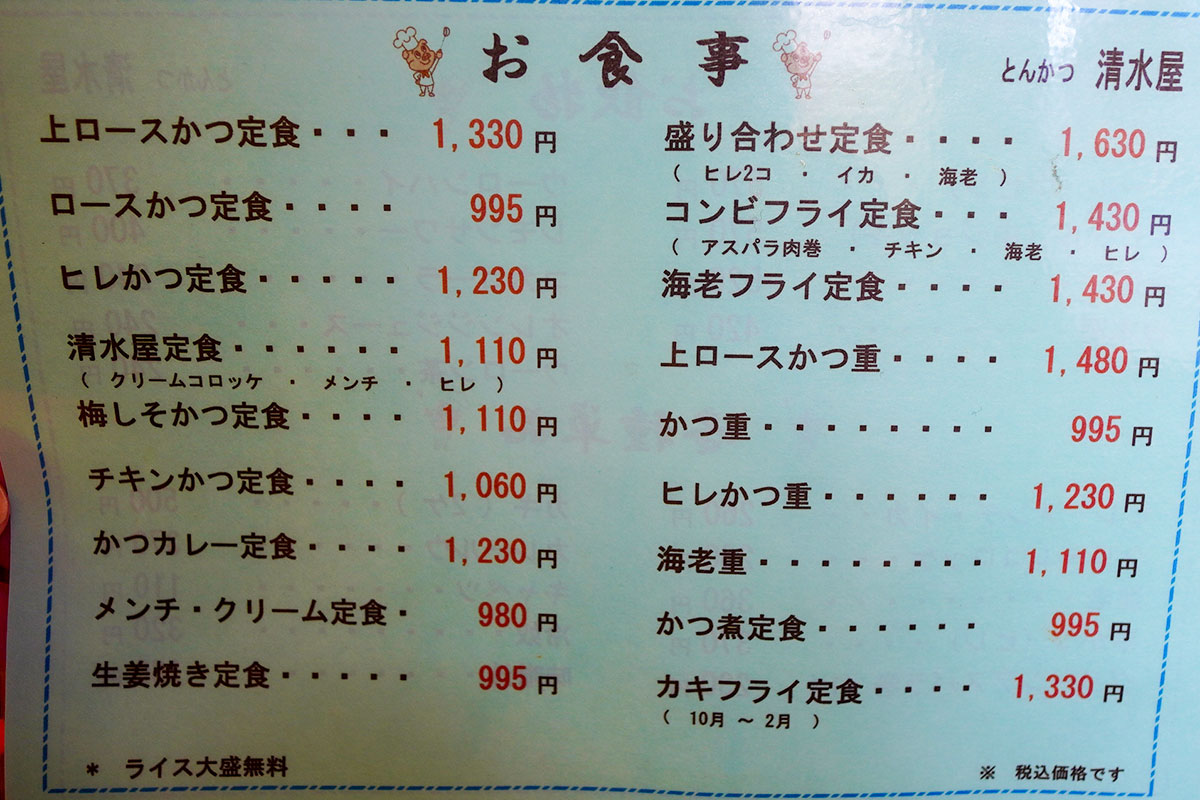 お食事
とんかつ 清水屋
上ロースかつ定食・・・・ 1,330 円
ロースかつ定食・・・・・ 995 円
ヒレかつ定食・・・・・ 1,230 円
清水屋定食・・・・・・ 1,110 円
( クリームコロッケ ・ メンチ ・ ヒレ )
梅しそかつ定食・・・・ 1,110 円
チキンかつ定食・・・・ 1,060 円
かつカレー定食・・・・ 1,230 円
メンチ・クリーム定食・ 980 円
生姜焼き定食・・・・・ 995 円
* ライス大盛無料
盛り合わせ定食・・・・ 1,630 円
( ヒレ2コ ・ イカ ・ 海老 )
コンビフライ定食・・・ 1,430 円
( アスパラ肉巻 ・ チキン ・ 海老 ・ ヒレ )
海老フライ定食・・・・ 1,430 円
上ロースかつ重・・・・ 1,480 円
かつ重・・・・・・・・ 995 円
ヒレかつ重・・・・・・ 1,230 円
海老重・・・・・・・・ 1,110 円
かつ煮定食・・・・・・ 995 円
カキフライ定食・・・・ 1,330 円
( 10月 ～ 2月 )
※ 税込価格です